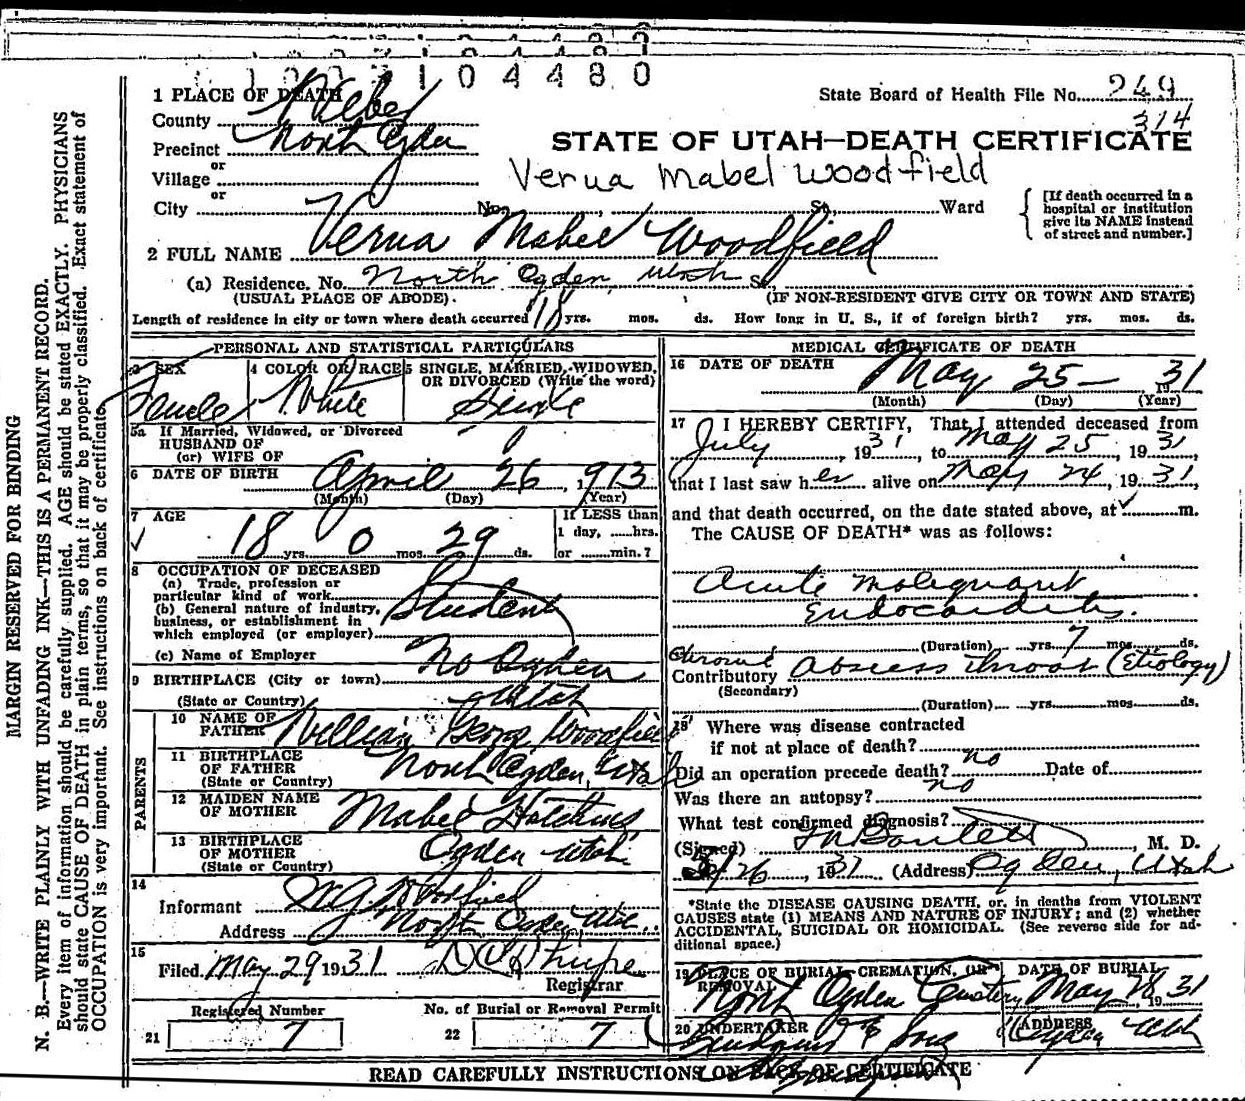 1003104480
1 PLACE OF DEATH
State Board of Health File No. 249
314
County Weber
STATE OF UTAH—DEATH CERTIFICATE
Precinct North Ogden
or
Village
Verua Mabel Woodfield
or
City No. , St. Ward
[If death occurred in a
hospital or institution
give its NAME instead
of street and number.]
2 FULL NAME Verua Mabel Woodfield
(a) Residence. No. North Ogden, Utah St.
(USUAL PLACE OF ABODE).
(IF NON-RESIDENT GIVE CITY OR TOWN AND STATE)
Length of residence in city or town where death occurred 18 yrs. mos. ds. How long in U. S., if of foreign birth? yrs. mos. ds.
PERSONAL AND STATISTICAL PARTICULARS
3 SEX
Female
4 COLOR OR RACE
White
5 SINGLE, MARRIED, WIDOWED,
OR DIVORCED (Write the word)
Single
5a If Married, Widowed, or Divorced
HUSBAND OF
(or) WIFE OF
6 DATE OF BIRTH April 26, 1913
(Month) (Day) (Year)
7 AGE
18 yrs. 0 mos. 29 ds.
If LESS than
1 day, ......hrs.
or ........min. ?
8 OCCUPATION OF DECEASED
(a) Trade, profession or
particular kind of work
Student
(b) General nature of industry,
business, or establishment in
which employed (or employer)
(c) Name of Employer
No Ogden
9 BIRTHPLACE (City or town)
(State or Country) Utah
PARENTS
10 NAME OF
FATHER William George Woodfield
11 BIRTHPLACE
OF FATHER North Ogden, Utah
(State or Country)
12 MAIDEN NAME
OF MOTHER Mabel Hutchins
13 BIRTHPLACE
OF MOTHER Ogden Utah
(State or Country)
14
Informant W G Woodfield
Address North Ogden, Utah
15
Filed May 29 1931
Registrar
Registered Number
21 7
No. of Burial or Removal Permit
22 7
MEDICAL CERTIFICATE OF DEATH
16 DATE OF DEATH May 25— 1931
(Month) (Day) (Year)
17 I HEREBY CERTIFY, That I attended deceased from
July , 1931, to May 25, 1931,
that I last saw her alive on May 24, 1931,
and that death occurred, on the date stated above, at m.
The CAUSE OF DEATH* was as follows:
Acute Malignant
Endocarditis.
(Duration) yrs. 7 mos. ds.
Contributory Abscess throat (Etiology)
(Secondary)
(Duration) yrs. mos. ds.
18 Where was disease contracted
if not at place of death?
Did an operation precede death? no Date of
Was there an autopsy? no
What test confirmed diagnosis?
(Signed) Bartlett, M. D.
5/26, 1931 (Address) Ogden, Utah
*State the DISEASE CAUSING DEATH, or, in deaths from VIOLENT
CAUSES state (1) MEANS AND NATURE OF INJURY; and (2) whether
ACCIDENTAL, SUICIDAL OR HOMICIDAL. (See reverse side for ad-
ditional space.)
19 PLACE OF BURIAL, CREMATION, OR
REMOVAL
North Ogden Cemetery
DATE OF BURIAL
May 28, 1931
20 UNDERTAKER
& Sons
ADDRESS
Ogden Utah
READ CAREFULLY INSTRUCTIONS ON BACK OF CERTIFICATE
MARGIN RESERVED FOR BINDING
N. B.—WRITE PLAINLY WITH UNFADING INK—THIS IS A PERMANENT RECORD.
Every item of information should be carefully supplied. AGE should be stated EXACTLY. PHYSICIANS
should state CAUSE OF DEATH in plain terms, so that it may be properly classified. Exact statement of
OCCUPATION is very important. See instructions on back of certificate.